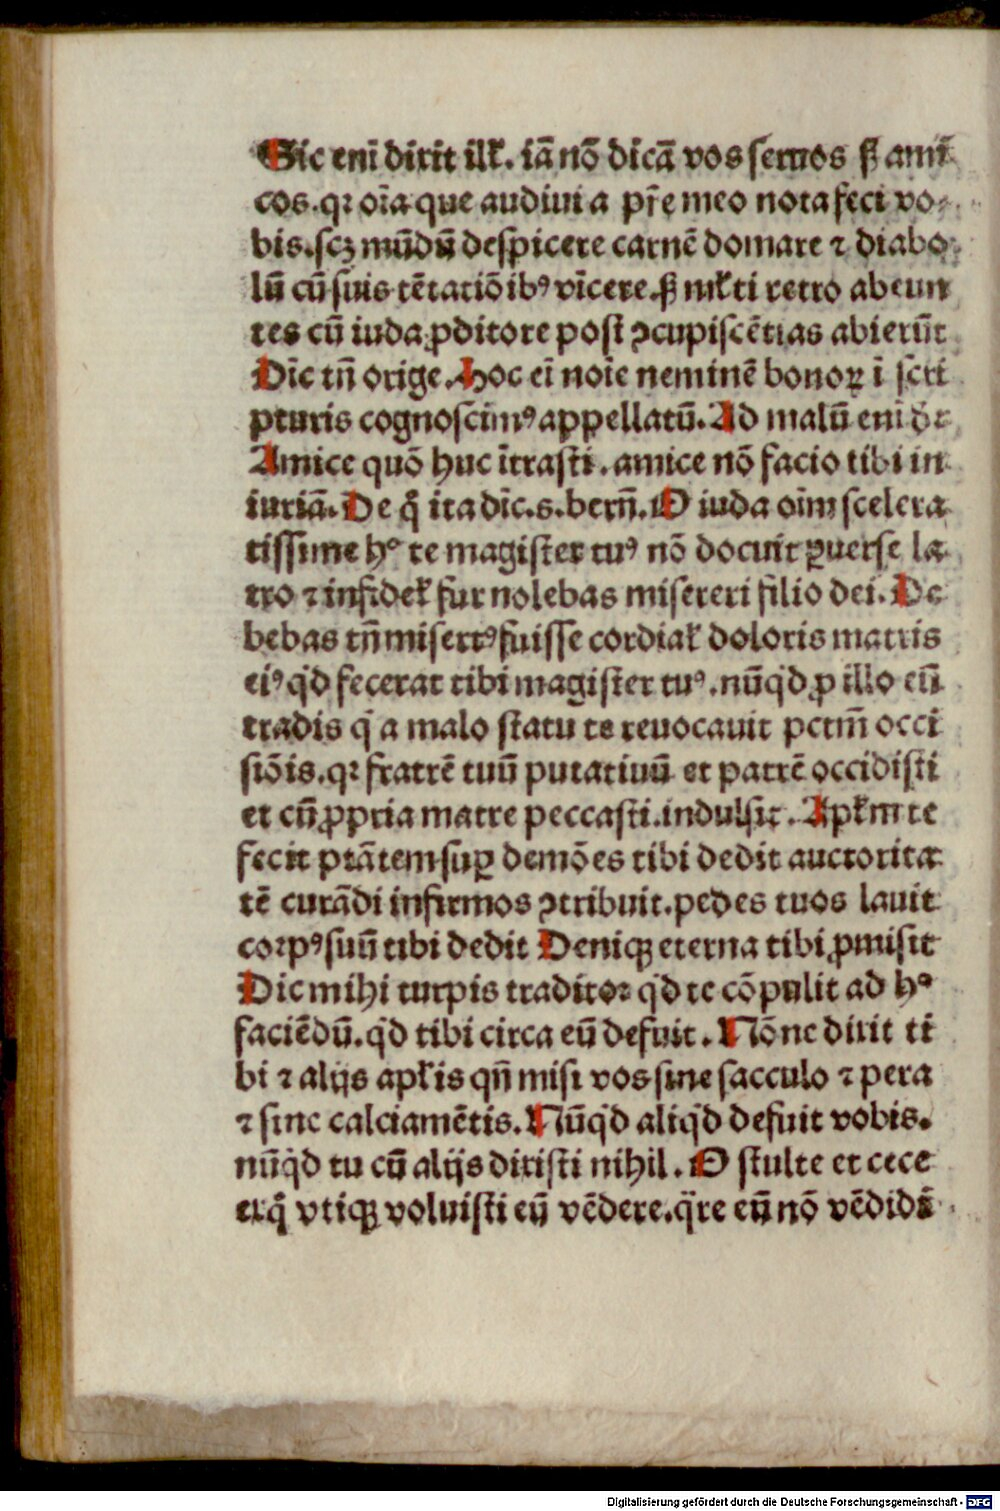 Sic enī dixit ill̄. iā nō dicā vos seruos sꝫ ami
cos.qꝛ oīa que audiui a pr̄e meo nota feci vo⸗
bis.scꝫ mūdū despicere carnē domare ⁊ diabo
lū cū suis tētatiōibꝰ vīcere.sꝫ ml̄ti retro abeun
tes cū iuda ꝓditore post ꝯcupiscētias abierūt
Dic̄ tn̄ orige.Hoc eī noīe neminē bonoꝝ ī scri
pturis cognoscimꝰ appellatū.Ad malū eni dr̄
Amice quō huc ītrasti.amice nō facio tibi in
iuriā.De q̊ ita dic̄.s.bern̄.O iuda oīm scelera
tissime hᵒ te magister tuꝰ nō docuit ꝑuerse la
tro ⁊ infidel̄ fur nolebas misereri filio dei.De
bebas tn̄ misertꝰ fuisse cordial̄ doloris matris
eiꝰ qͥd fecerat tibi magister tuꝰ.nūqͥd ꝓ illo eū
tradis qͥ a malo statu te reuocauit pctm̄ occi
siōis.qꝛ fratrē tuū putatiuū et patrē occidisti
et cū ꝓpria matre peccasti.indulsit.Apl̄m te
fecit ptātem suꝑ demōes tibi dedit auctorita
tē curādi infirmos ꝯtribuit.pedes tuos lauit
corpꝰ suū tibi dedit Deniqꝫ eterna tibi ꝓmisit
Dic mihi turpis traditor qͥd te cōpulit ad hᵒ
faciēdū.qͥd tibi circa eū defuit.Nōne dixit ti
bi ⁊ alijs apl̄is qn̄ misi vos sine sacculo ⁊ pera
⁊ sine calciamētis.Nūqͥd aliqͥd defuit vobis.
nūqͥd tu cū alijs dixisti nihil.O stulte et cece
exq̊ vtiqꝫ voluisti eū vēdere.qᷓre eū nō vēdidi
Digitalisierung gefördert durch die Deutsche Forschungsgemeinschaft - DFG